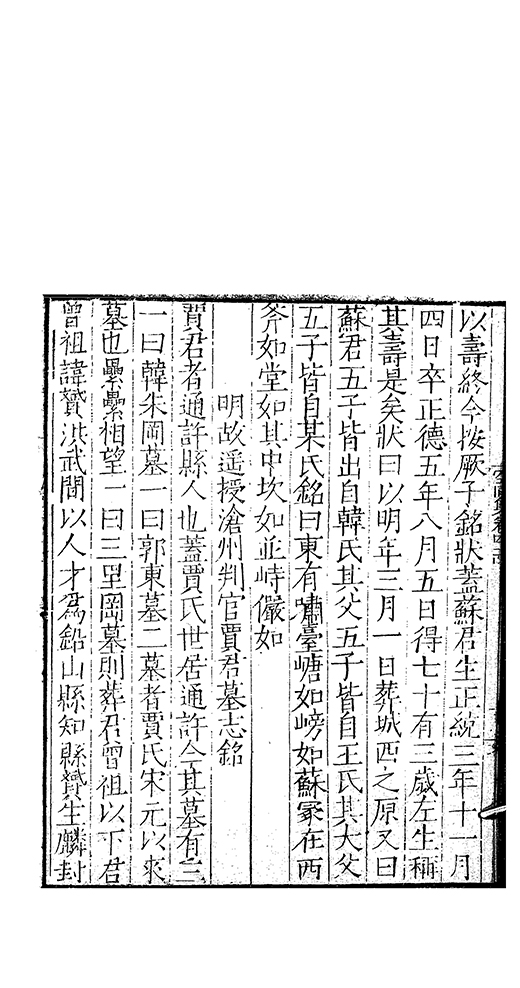 以壽終今按厥子銘狀蓋蘇君生正統三年十一月
四日卒正德五年八月五日得七十有三歲左生稱
其壽是矣狀曰以明年三月一日葬城西之原又曰
蘇君五子皆出自韓氏其父五子皆自王氏其大父
五子皆自某氏銘曰東有嘯臺嵣如嵭如蘇冢在西
斧如堂如其中坎如並峙儼如
明故遥授滄州判官賈君墓志銘
賈君者通許縣人也蓋賈氏世居通許今其墓有三
一曰韓朱岡墓一曰郭東墓二墓者賈氏宋元以來
墓也纍纍相望一曰三里岡墓則葬君曾祖以下君
曾祖諱贇洪武間以人才為鉛山縣知縣贇生麟封